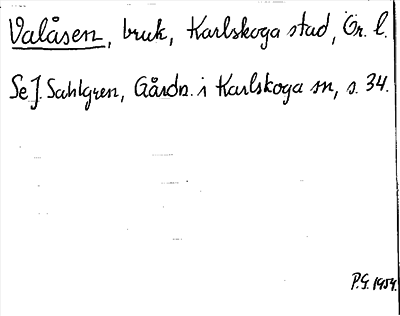 Valåsen, bruk, Karlskoga stad, Ör. l.
Se J. Sahlgren, Gårdn. i Karlskoga sn, s. 34.
P.G. 1954.